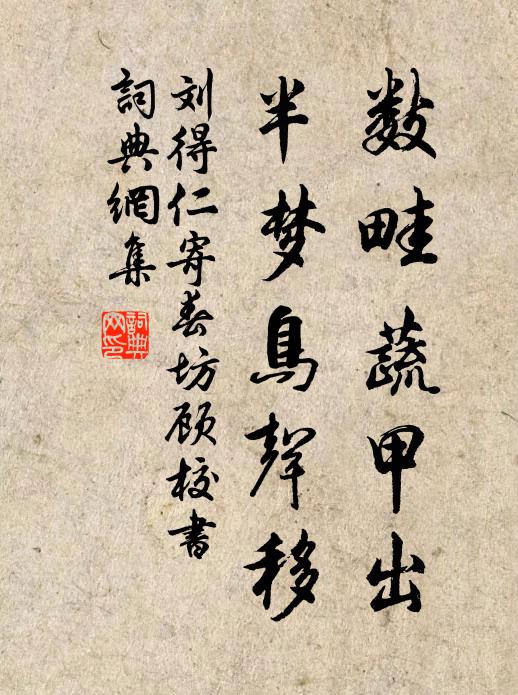 数畦蔬甲出
半梦鸟聲移
刘得仁寄春坊顾校書
詞典網集
詞典网印